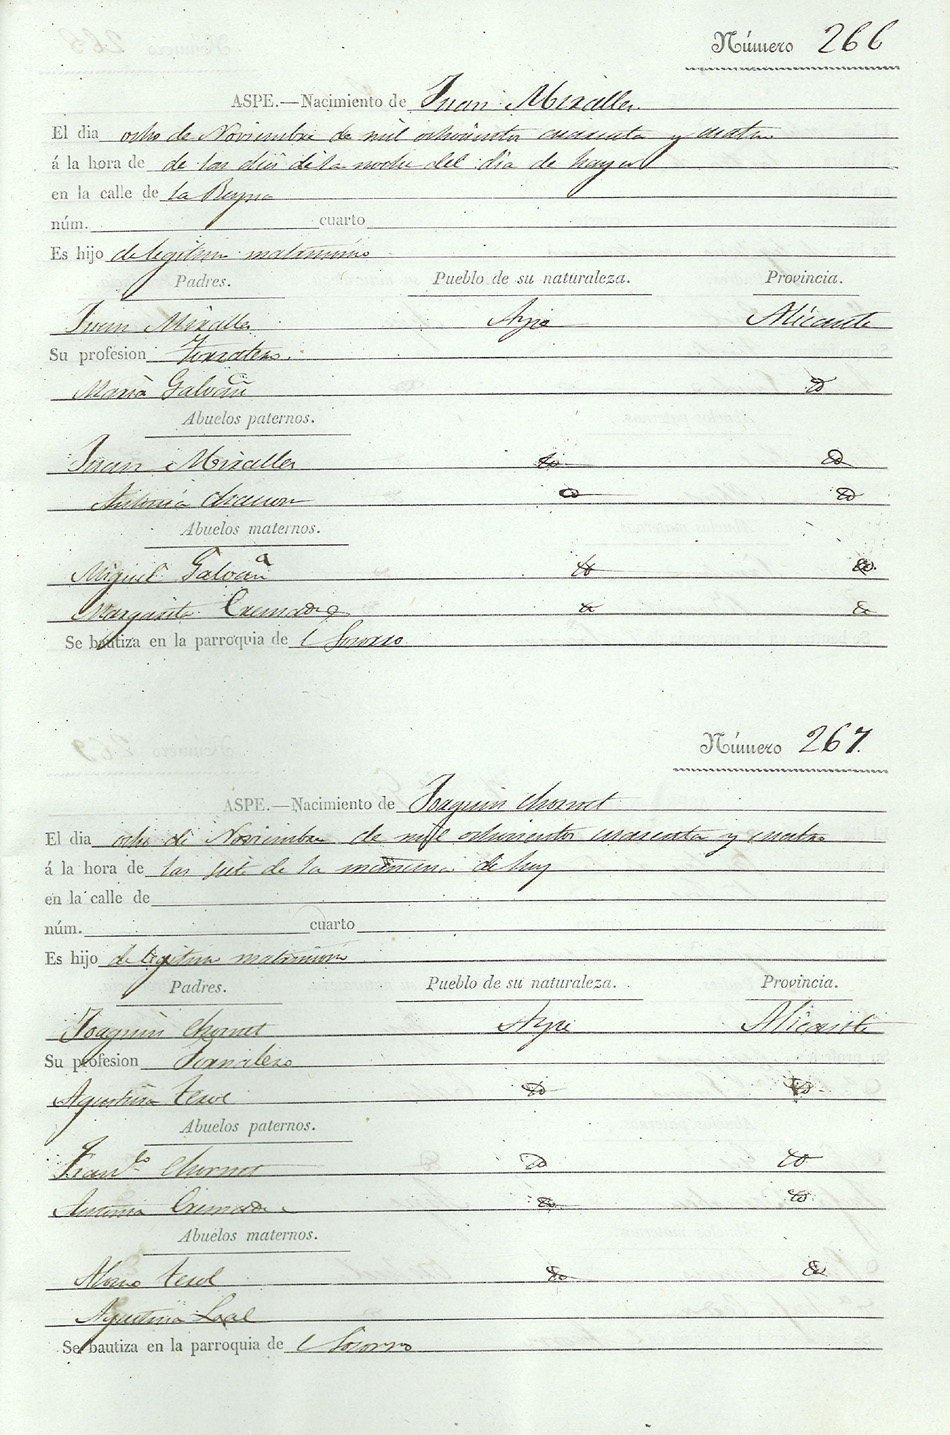 Número 266
ASPE.—Nacimiento de Juan Miralles
El dia ocho de Noviembre de mil ochocientos cuarenta y cuatro
á la hora de de las diez de la noche del dia de hayer
en la calle de la Reyna
núm. cuarto
Es hijo de legitimo matrimonio
Padres. Pueblo de su naturaleza. Provincia.
Juan Miralles Aspe Alicante
Su profesion
Maria Galvañ do
Abuelos paternos.
Juan Miralles do do
Antonia do do
Abuelos maternos.
Miguel Galvañ do do
Margarita Cremades do do
Se bautiza en la parroquia de Socorro
Número 267.
ASPE.—Nacimiento de Joaquin Chornet
El dia ocho de Noviembre de mil ochocientos cuarenta y cuatro
á la hora de las siete de la mañana de hoy
en la calle de
núm. cuarto
Es hijo de legitimo matrimonio
Padres. Pueblo de su naturaleza. Provincia.
Joaquin Chornet Aspe Alicante
Su profesion Jornalero
Agustina Terol do do
Abuelos paternos.
Franco Chornet do do
Antonia Cremades do do
Abuelos maternos.
Alonso Terol do do
Agustina Leal
Se bautiza en la parroquia de Socorro